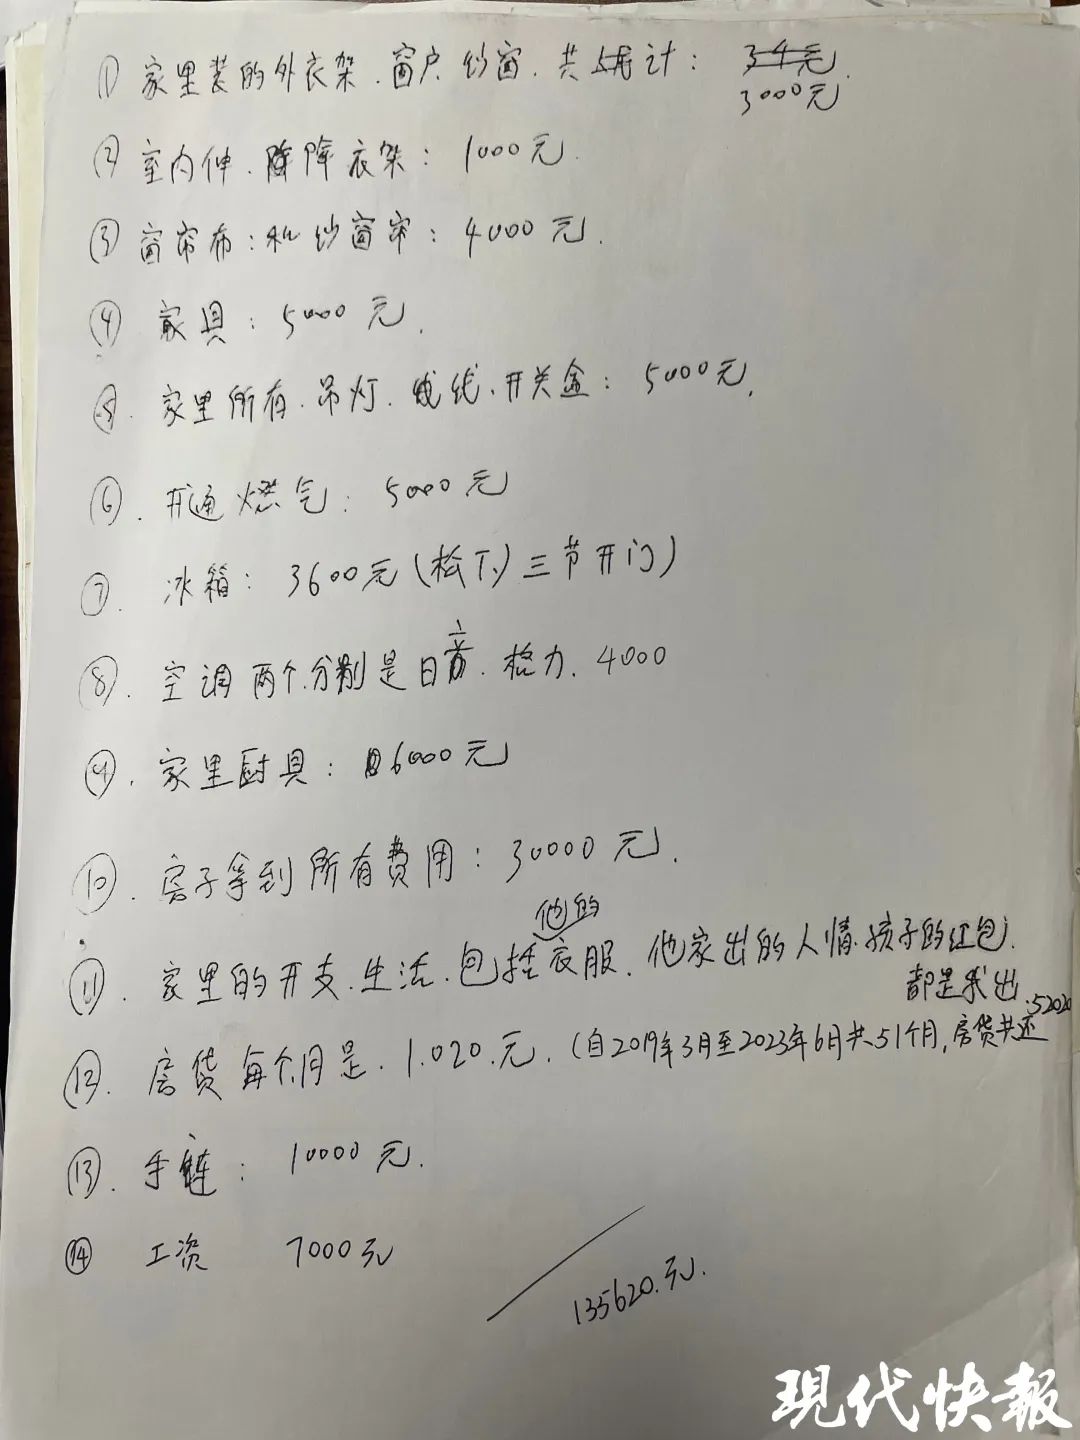 ① 家里装的外衣架.窗户.纱窗.共计: 3000元
② 室内伸.降衣架: 1000元.
③ 窗帘布:和纱窗帘: 4000元.
④ 家具: 5000元.
⑤ 家里所有.吊灯.线.开关盒: 5000元.
⑥. 开通燃气: 5000元
⑦. 冰箱: 3600元(松下)三节开门)
⑧. 空调两个.分别是日.格力. 4000
⑨. 家里厨具: 6000元
⑩. 房子拿到所有费用: 30000元.
⑪. 家里的开支.生活.包括他的衣服.他家出的人情.孩子的红包.
都是我出.
⑫. 房贷每个月是.1.020.元.(自2019年3月至2023年6月共51个月,房贷共还52020
⑬. 手链: 10000元.
⑭ 工资 7000元
135620.元.
现代快報